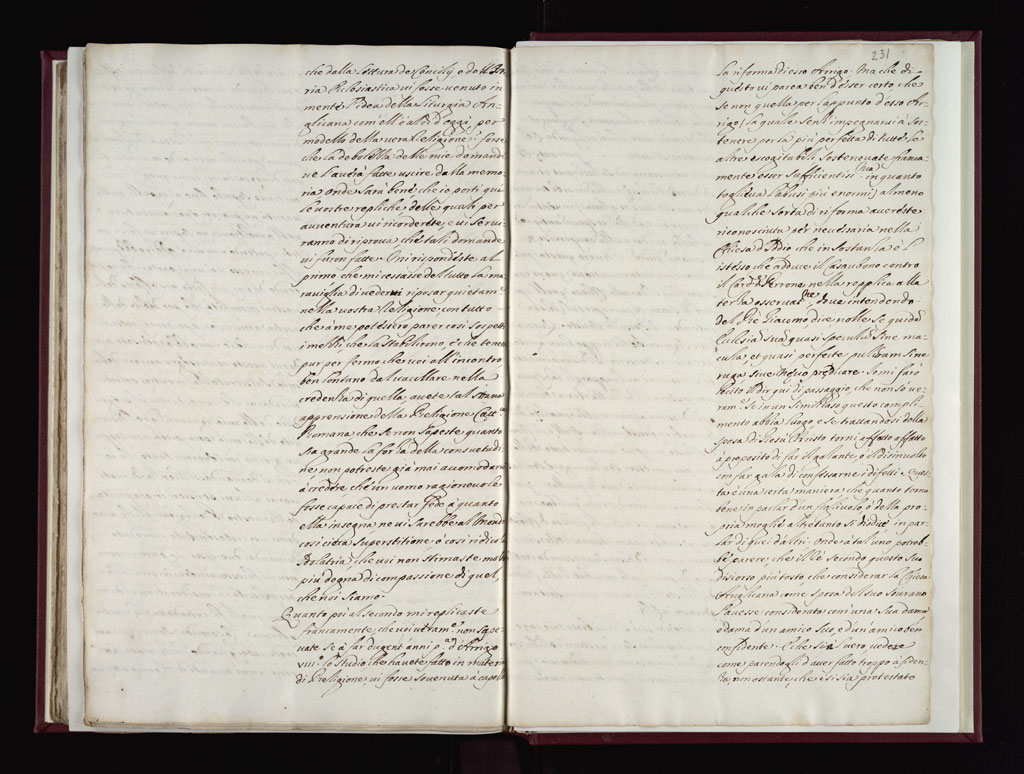 che dalla lettura de Concilij, e dell'Isto
ria Eclesiastica vi fosse venuto in
mente l'idea della liturgia An-
glicana com'ell'è al dì d'oggi, per
modello della vera Religione? forse
che la debolezza delle mie domande
ve l'avrà fatte uscire dalla memo-
ria onde sarà bene che io porti qui
le vostre repliche, delle quali per
avventura vi ricorderete, e vi servi-
ranno di riprova, che tali domande
vi furon fatte. Mi rispondeste al
primo che mi cessasse del tutto la ma
raviglia di vedervi riposar quietam.e
nella vostra Religione, con tutto
che à me potessero parer così sospetti
i mezzi, che la stabilirono, e che tenessi
pur per fermo che voi all'incontro
ben lontano dal vacillare nella
credenza di quella, avete tal strana
apprensione della Religione Catt.a
Romana che se non sapeste quanto
sia grande la forza della consuetudi
ne non potreste già mai accomodarvi
à credere che un uomo ragionevole
fosse capace di prestar fede à quanto
ella insegna ne vi sarebbe al Mondo
così cieca superstitione o così ridicola
Idolatria che voi non stimaste molto
più degna di compassione di quel
che noi siamo.
Quanto poi al secondo mi replicaste
francamente, che voi veram.e non sape-
vate se à far dugent'anni p.a d'Arrigo
VIII.o lo studio che havete fatto in materia
di Religione, vi fosse sovvenuta à capello
231
la riforma di esso Arrigo. Ma che di
questo vi parea ben d'esser certo, che
se non quella per l'appunto d'esso Ar-
rigo (la quale senz'impegnarvi à sos-
tenere per la più perfetta di tutte le
altre escogitabili sostenevate franca-
mente esser sufficientiss.ma in quanto
toglieva l'abusi più enormi) almeno
qualche sorta di riforma avereste
riconosciuta per necessaria nella
Chiesa d'Iddio che in sostanza è l'
istesso che adduce il Casaubono contro
il Card. di Perrone nella replica alla
terza osservat.ne, dova intendendo
del Rè Giacomo, dice nolle se quidem
Ecclesiã suã quasi speculũ sine ma-
cula, et quasi perfectè pulcram sine
ruga sive nevo prædicare. Io mi farò
lecito di dir qui di passaggio, che non so ve-
ram.e se in un simil caso questo compli-
mento abbia luogo e se trattandosi della
sposa di Giesù Christo torni affatto affatto
à proposito di far il galante, o il disinvolto
con far gala di confessarne i difetti. Ques-
ta è una certa maniera, che quanto torna
bene in parlar d'un figlivolo, o della pro-
pria moglie altretanto si disdice in par-
lar di quei d'altri. Onde à tal'uno potreb-
be parere, che ill'è secondo questo suo
discorso più tosto, che considerar la Chiesa
Anglicana come sposa del suo Sovrano
l'avesse considerata com'una sua dama
o dama d'un amico suo, e d'un amico ben
confidente. E che sia vero, vedete
come parendogli d'aver fatto troppo à fiden-
za, non ostante, che è si sia protestato